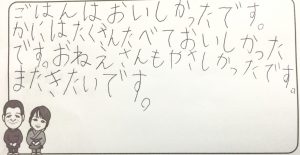 ごはんはおいしかったです。
かいはたくさんたべておいしかった
です。おねえさんもやさしかったです
またきたいです。